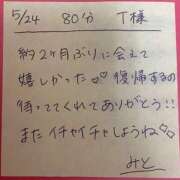 5/24 80分 T様
約2ヶ月ぶりに会えて
嬉しかった♡♡復帰するの
待っててくれてありがとう!!
またイチャイチャしようね♡♡
みと